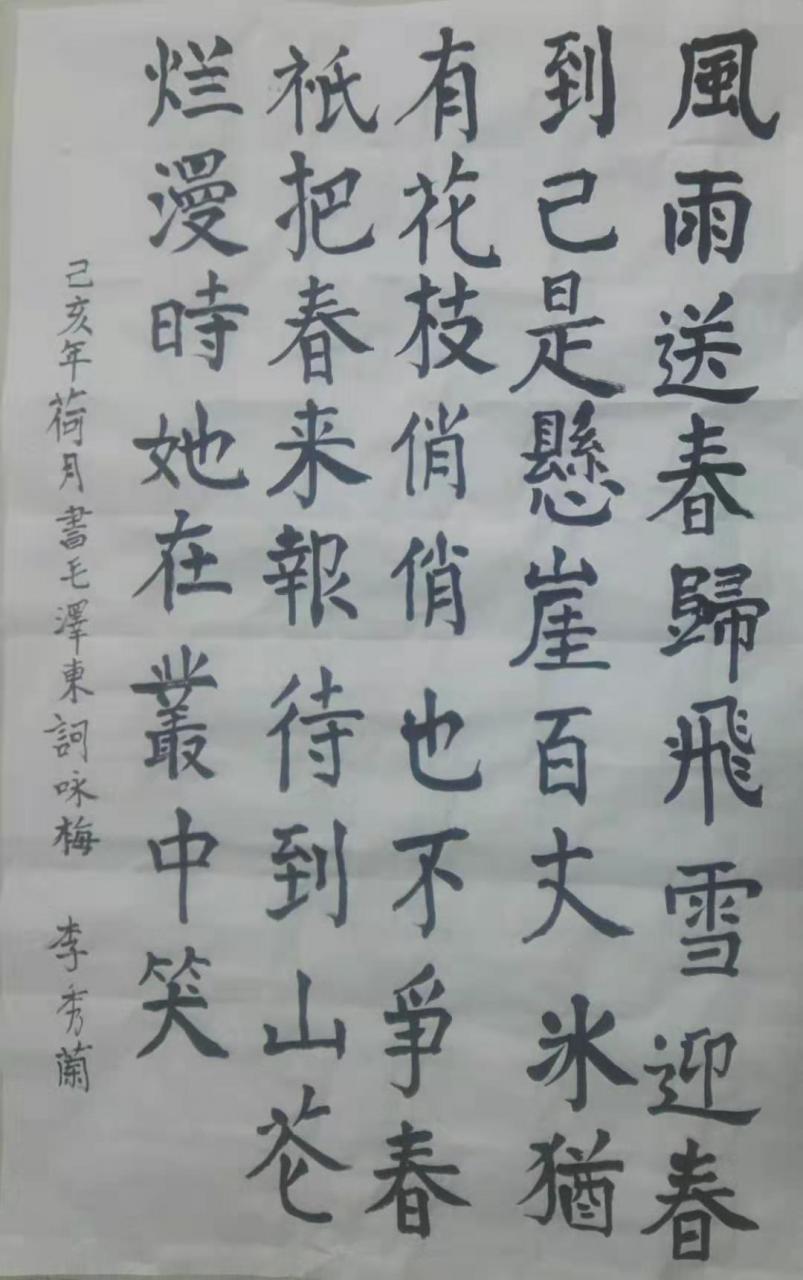 風雨送春歸飛雪迎春
到已是懸崖百丈冰猶
有花枝俏俏也不爭春
祇把春来報待到山花
烂漫時她在叢中笑
己亥年荷月書毛澤東詞咏梅 李秀蘭